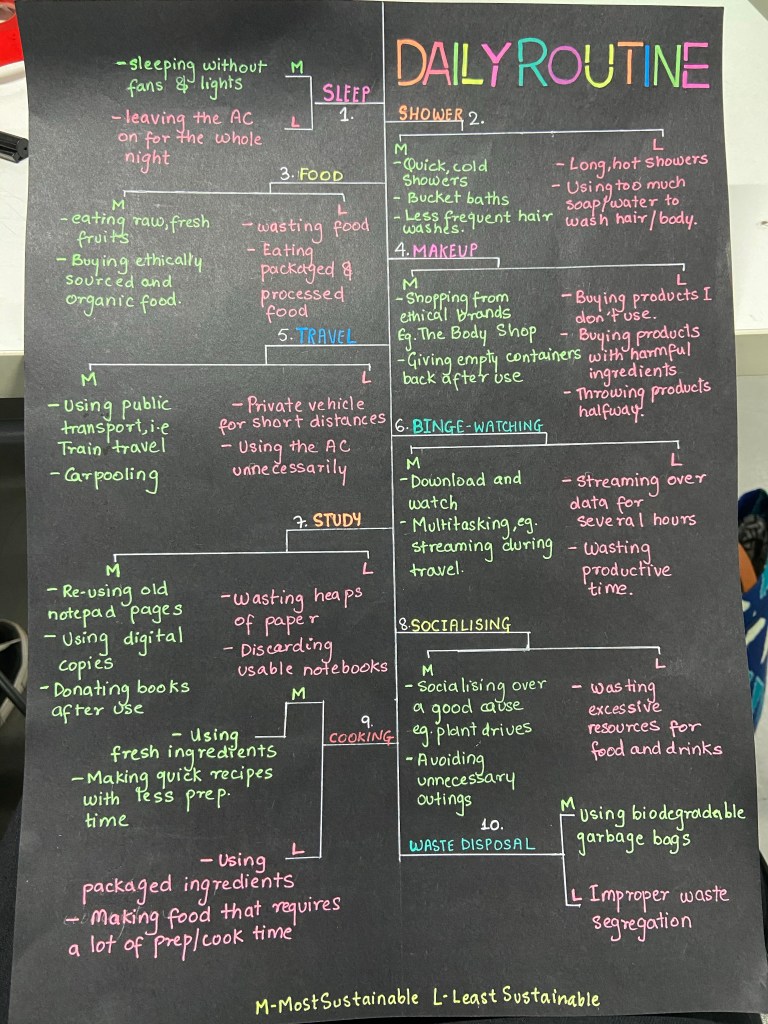 DAILY ROUTINE
SLEEP
1.
M
- sleeping without
fans & lights
L
- leaving the AC
on for the whole
night
SHOWER 2.
M
- Quick, cold
showers
- Bucket baths
- Less frequent hair
washes.
L
- Long, hot showers
- Using too much
soap/water to
wash hair/body.
3. FOOD
M
- eating raw, fresh
fruits
- Buying ethically
sourced and
organic food.
L
- wasting food
- Eating
packaged &
processed
food
4. MAKEUP
M
- Shopping from
ethical brands
Eg. The Body Shop
- Giving empty containers
back after use
L
- Buying products I
don't use.
- Buying products
with harmful
ingredients
- Throwing products
halfway.
5. TRAVEL
M
- Using public
transport, i.e
Train travel
- Carpooling
L
- Private vehicle
for short distances
- Using the AC
unnecessarily
6. BINGE-WATCHING
M
- Download and
watch
- Multitasking, eg.
streaming during
travel.
L
- Streaming over
data for
several hours
- Wasting
productive
time.
7. STUDY
M
- Re-using old
notepad pages
- Using digital
copies
- Donating books
after use
L
- Wasting heaps
of paper
- Discarding
usable notebooks
8. SOCIALISING
M
- Socialising over
a good cause
eg. plant drives
- Avoiding
unnecessary
outings
L
- Wasting
excessive
resources for
food and drinks
9.
COOKING
M
- Using
fresh ingredients
- Making quick recipes
with less prep.
time
L
- Using
packaged ingredients
- Making food that requires
a lot of prep/cook time
10.
WASTE DISPOSAL
M
Using biodegradable
garbage bags
L
Improper waste
segregation
M-Most Sustainable L-Least Sustainable